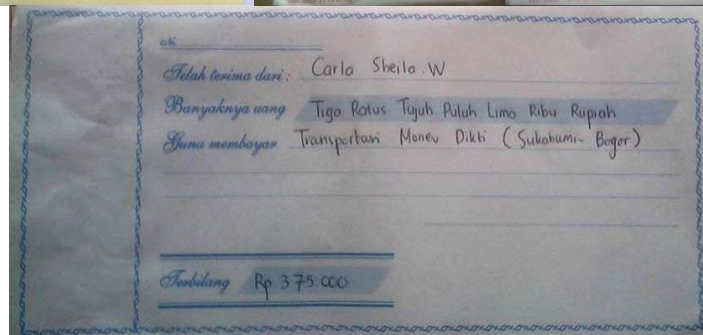 No.
Telah terima dari : Carla Sheila . W
Banyaknya uang Tiga Ratus Tujuh Puluh Lima Ribu Rupiah
Guna membayar Transportasi Monev Dikti ( Sukabumi - Bogor )
Terbilang Rp 375.000